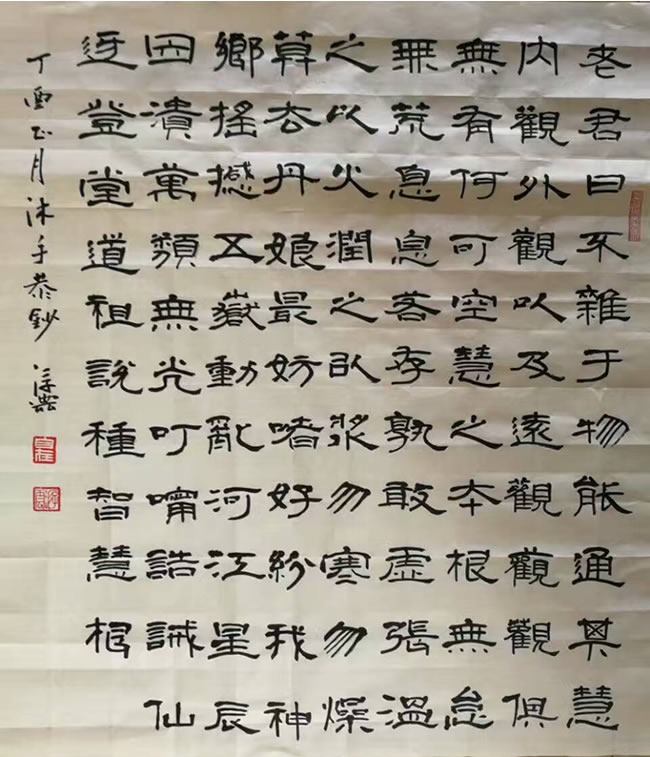 老君曰不雜于物能通其慧
内觀外觀以及遠觀觀觀俱
無有何可空慧之本根無怠
無荒息息若存孰敢虛張溫
之以火潤之以漿勿寒勿燥
丹娘最妨嗜好紛我神
鄉搖撼五嶽動亂河江星辰
因潰萬類無光叮嚀誥誡仙
登堂道祖說種智慧根
丁酉正月沐手恭鈔